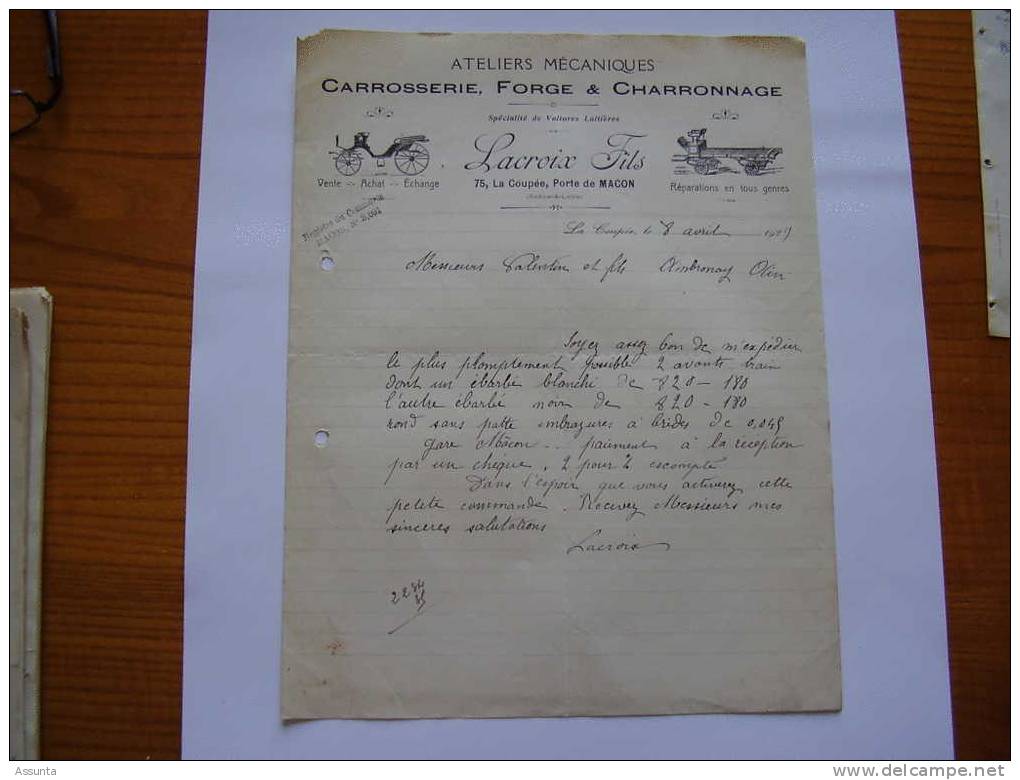 ATELIERS MÉCANIQUES
CARROSSERIE, FORGE & CHARRONNAGE
Spécialité de Voitures Laitières
Lacroix Fils
Vente -:- Achat -:- Echange
75, La Coupée, Porte de MACON
Réparations en tous genres
(Saône-&-Loire)
Registre du Commerce
MACON, N°
La Coupée, le 8 avril 192
Messieurs et fils Ambronay Ain
Soyez assez bon de m'expédier
le plus plomptement possible 2 avants train
dont un ébarbé blanchi de 820 - 180
l'autre ébarbé noir de 820 - 180
rond sans patte embrazures à brides de 0,045
gare Mâcon -- paiment à la reception
par un chèque, 2 pour % escompte
Dans l'espoir que vous activerez cette
petite commande. Recevez Messieurs mes
sinceres salutations
Lacroix
2284
85
Assunta
delcampe.net